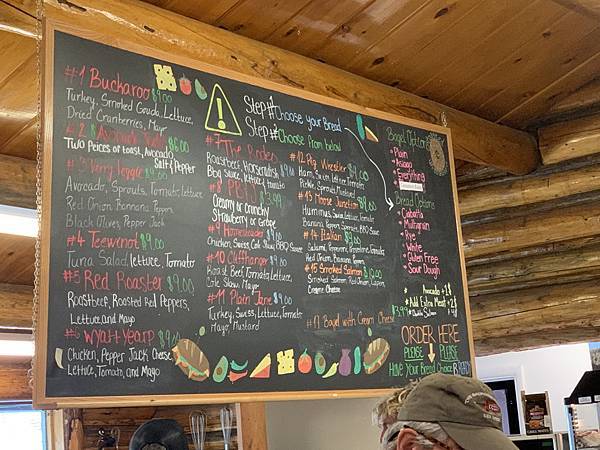 #1 Buckaroo $9.00
Turkey, Smoked Gouda, Lettuce,
Dried Cranberries, Mayo
#2 Avocado $6.00
Two Pieces of toast, Avocado,
Salt & Pepper
#3 Very Veggie $9.00
Avocado, Sprouts, Tomato, lettuce
Red Onion Banana Pepper,
Black Olives, Pepper Jack
#4 Teewinot $9.00
Tuna Salad, lettuce, Tomato
#5 Red Roaster $9.00
Roast beef, Roasted Red Peppers,
Lettuce and Mayo
#6 Wyatt Yearp
Chicken, Pepper Jack Cheese,
Lettuce, Tomato, and Mayo
!
Step #1 Choose your Bread
Step #2 Choose from below
#7 The Rodeo
Roastbeef, Horseradish
BBQ sauce, lettuce, tomato
#8 PB&J $3.99
Creamy or Crunchy
Strawberry or Grape
#9 Homesteader $9.00
Chicken, Swiss, Cole Slaw, BBQ Sauce
#10 Cliffhanger $9.00
Roast Beef, Tomato, Lettuce,
Cole Slaw, Mayo
#11 Plain Jane $9.00
Turkey, Swiss, Lettuce, Tomato
Mayo, Mustard
#12 Pig Wrestler $9.00
Ham, Swiss, Lettuce, Tomato
Pickle, Sprouts, Mustard
#13 Moose Junction $9.00
Hummus, Swiss, Lettuce, Tomato,
Banana Pepper, Sprouts, BBQ Sauce
#14 Italian $9.00
Salami, Pepperoni, Provolone, Tomato
Red Onion, Banana Pepper
#15 Smoked Salmon $12.00
Smoked Salmon, Red Onion, Capers,
Creme Cheese
#17 Bagel with Cream Cheese $3.99
Bagel Options
Plain
Asiago
Everything
Bread Options
Ciabatta
Multigrain
Rye
White
Gluten Free
Sour Dough
Avocado +$2
Add Extra Meat +$2
ORDER HERE
PLEASE PLEASE
Have Your Bread Choice READY